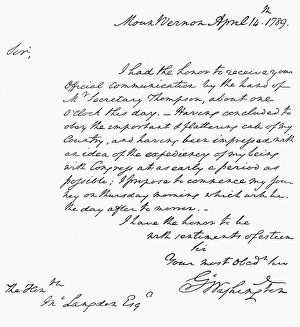 Mount Vernon April 14.th 1789.
Sir,
I had the honor to receive your
Official communication by the hand of
Mr Secretary Thompson, about one
O'clock this day. – Having concluded to
obey the important & flattering call of my
Country, and having been impressed with
an idea of the expediency of my being
with Congress at as early a period as
possible; I propose to commence my jour
ney on thursday morning which will be
the day after to morrow. –
I have the honor to be
with sentiments of esteem
Sir
Your most Obedt Ser
Go Washington
The Honble
Jno Langdon Esqr